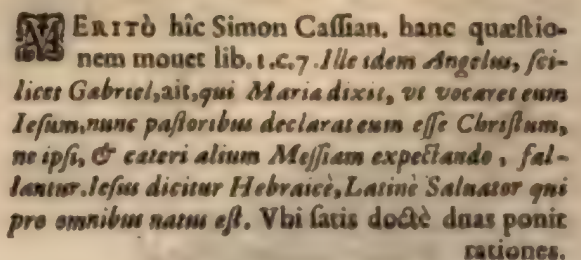 MERITò hîc Simon Caſſian. hanc quæſtio-
nem mouet lib. 1.c.7. Ille idem Angelus, ſci-
licet Gabriel, ait, qui Maria dixit, vt vocaret eum
Ieſum, nunc paſtoribus declarat eum eſſe Chriſtum,
ne ipſi, & cæteri alium Meſſiam expectando, fal-
lantur. Ieſus dicitur Hebraicè, Latinè Saluator qui
pro omnibus natus eſt. Vbi ſatis doctè duas ponit
rationes.